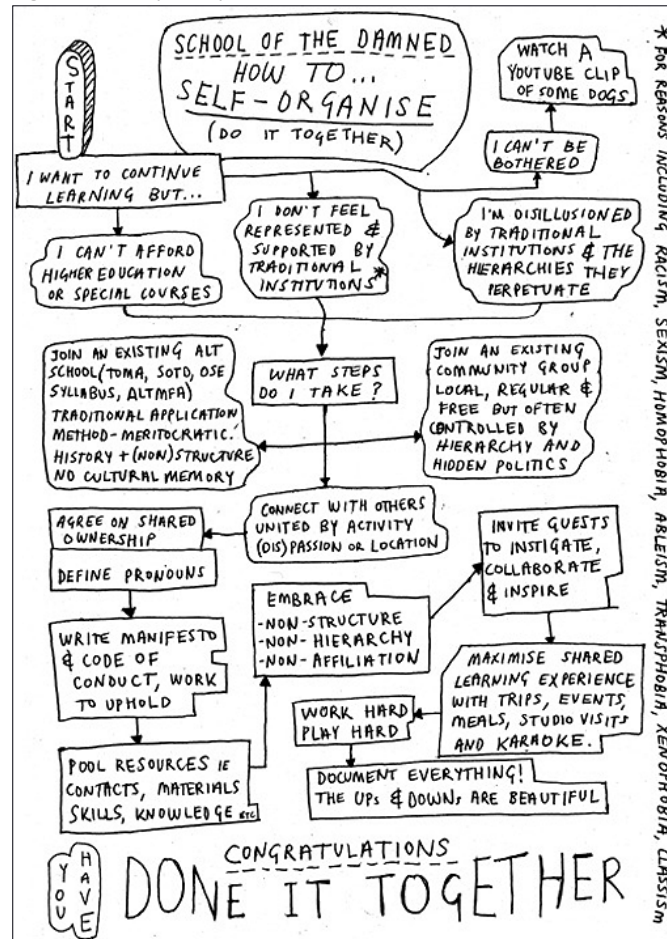 SCHOOL OF THE DAMNED
HOW TO...
SELF-ORGANISE
(DO IT TOGETHER)
START
I WANT TO CONTINUE
LEARNING BUT...
WATCH A
YOUTUBE CLIP
OF SOME DOGS
I CAN'T BE
BOTHERED
I CAN'T AFFORD
HIGHER EDUCATION
OR SPECIAL COURSES
I DON'T FEEL
REPRESENTED &
SUPPORTED BY
TRADITIONAL
INSTITUTIONS*
I'M DISILLUSIONED
BY TRADITIONAL
INSTITUTIONS & THE
HIERARCHIES THEY
PERPETUATE
WHAT STEPS
DO I TAKE?
JOIN AN EXISTING ALT
SCHOOL (TOMA, SOTD, OSE
SYLLABUS, ALTMFA)
TRADITIONAL APPLICATION
METHOD-MERITOCRATIC.
HISTORY + (NON) STRUCTURE
NO CULTURAL MEMORY
JOIN AN EXISTING
COMMUNITY GROUP
LOCAL, REGULAR &
FREE BUT OFTEN
CONTROLLED BY
HIERARCHY AND
HIDDEN POLITICS
CONNECT WITH OTHERS
UNITED BY ACTIVITY
(DIS) PASSION OR LOCATION
AGREE ON SHARED
OWNERSHIP
DEFINE PRONOUNS
WRITE MANIFESTO
& CODE OF
CONDUCT, WORK
TO UPHOLD
POOL RESOURCES IE
CONTACTS, MATERIALS
SKILLS, KNOWLEDGE ETC
EMBRACE
-NON-STRUCTURE
-NON-HIERARCHY
-NON-AFFILIATION
INVITE GUESTS
TO INSTIGATE,
COLLABORATE
& INSPIRE
MAXIMISE SHARED
LEARNING EXPERIENCE
WITH TRIPS, EVENTS,
MEALS, STUDIO VISITS
AND KARAOKE.
WORK HARD
PLAY HARD
DOCUMENT EVERYTHING!
THE UPS & DOWNS ARE BEAUTIFUL
CONGRATULATIONS
YOU
HAVE
DONE IT TOGETHER
* FOR REASONS INCLUDING RACISM, SEXISM, HOMOPHOBIA, ABLEISM, TRANSPHOBIA, XENOPHOBIA, CLASSISM